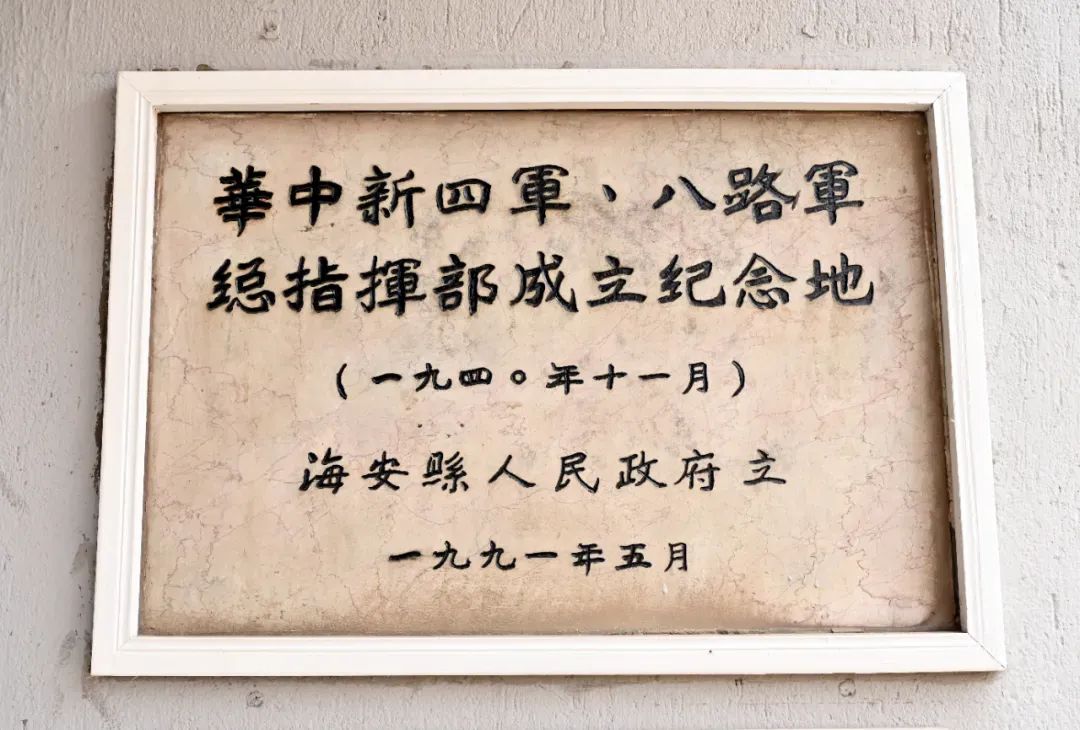 華中新四軍、八路軍
總指揮部成立纪念地
(一九四〇年十一月)
海安縣人民政府立
一九九一年五月